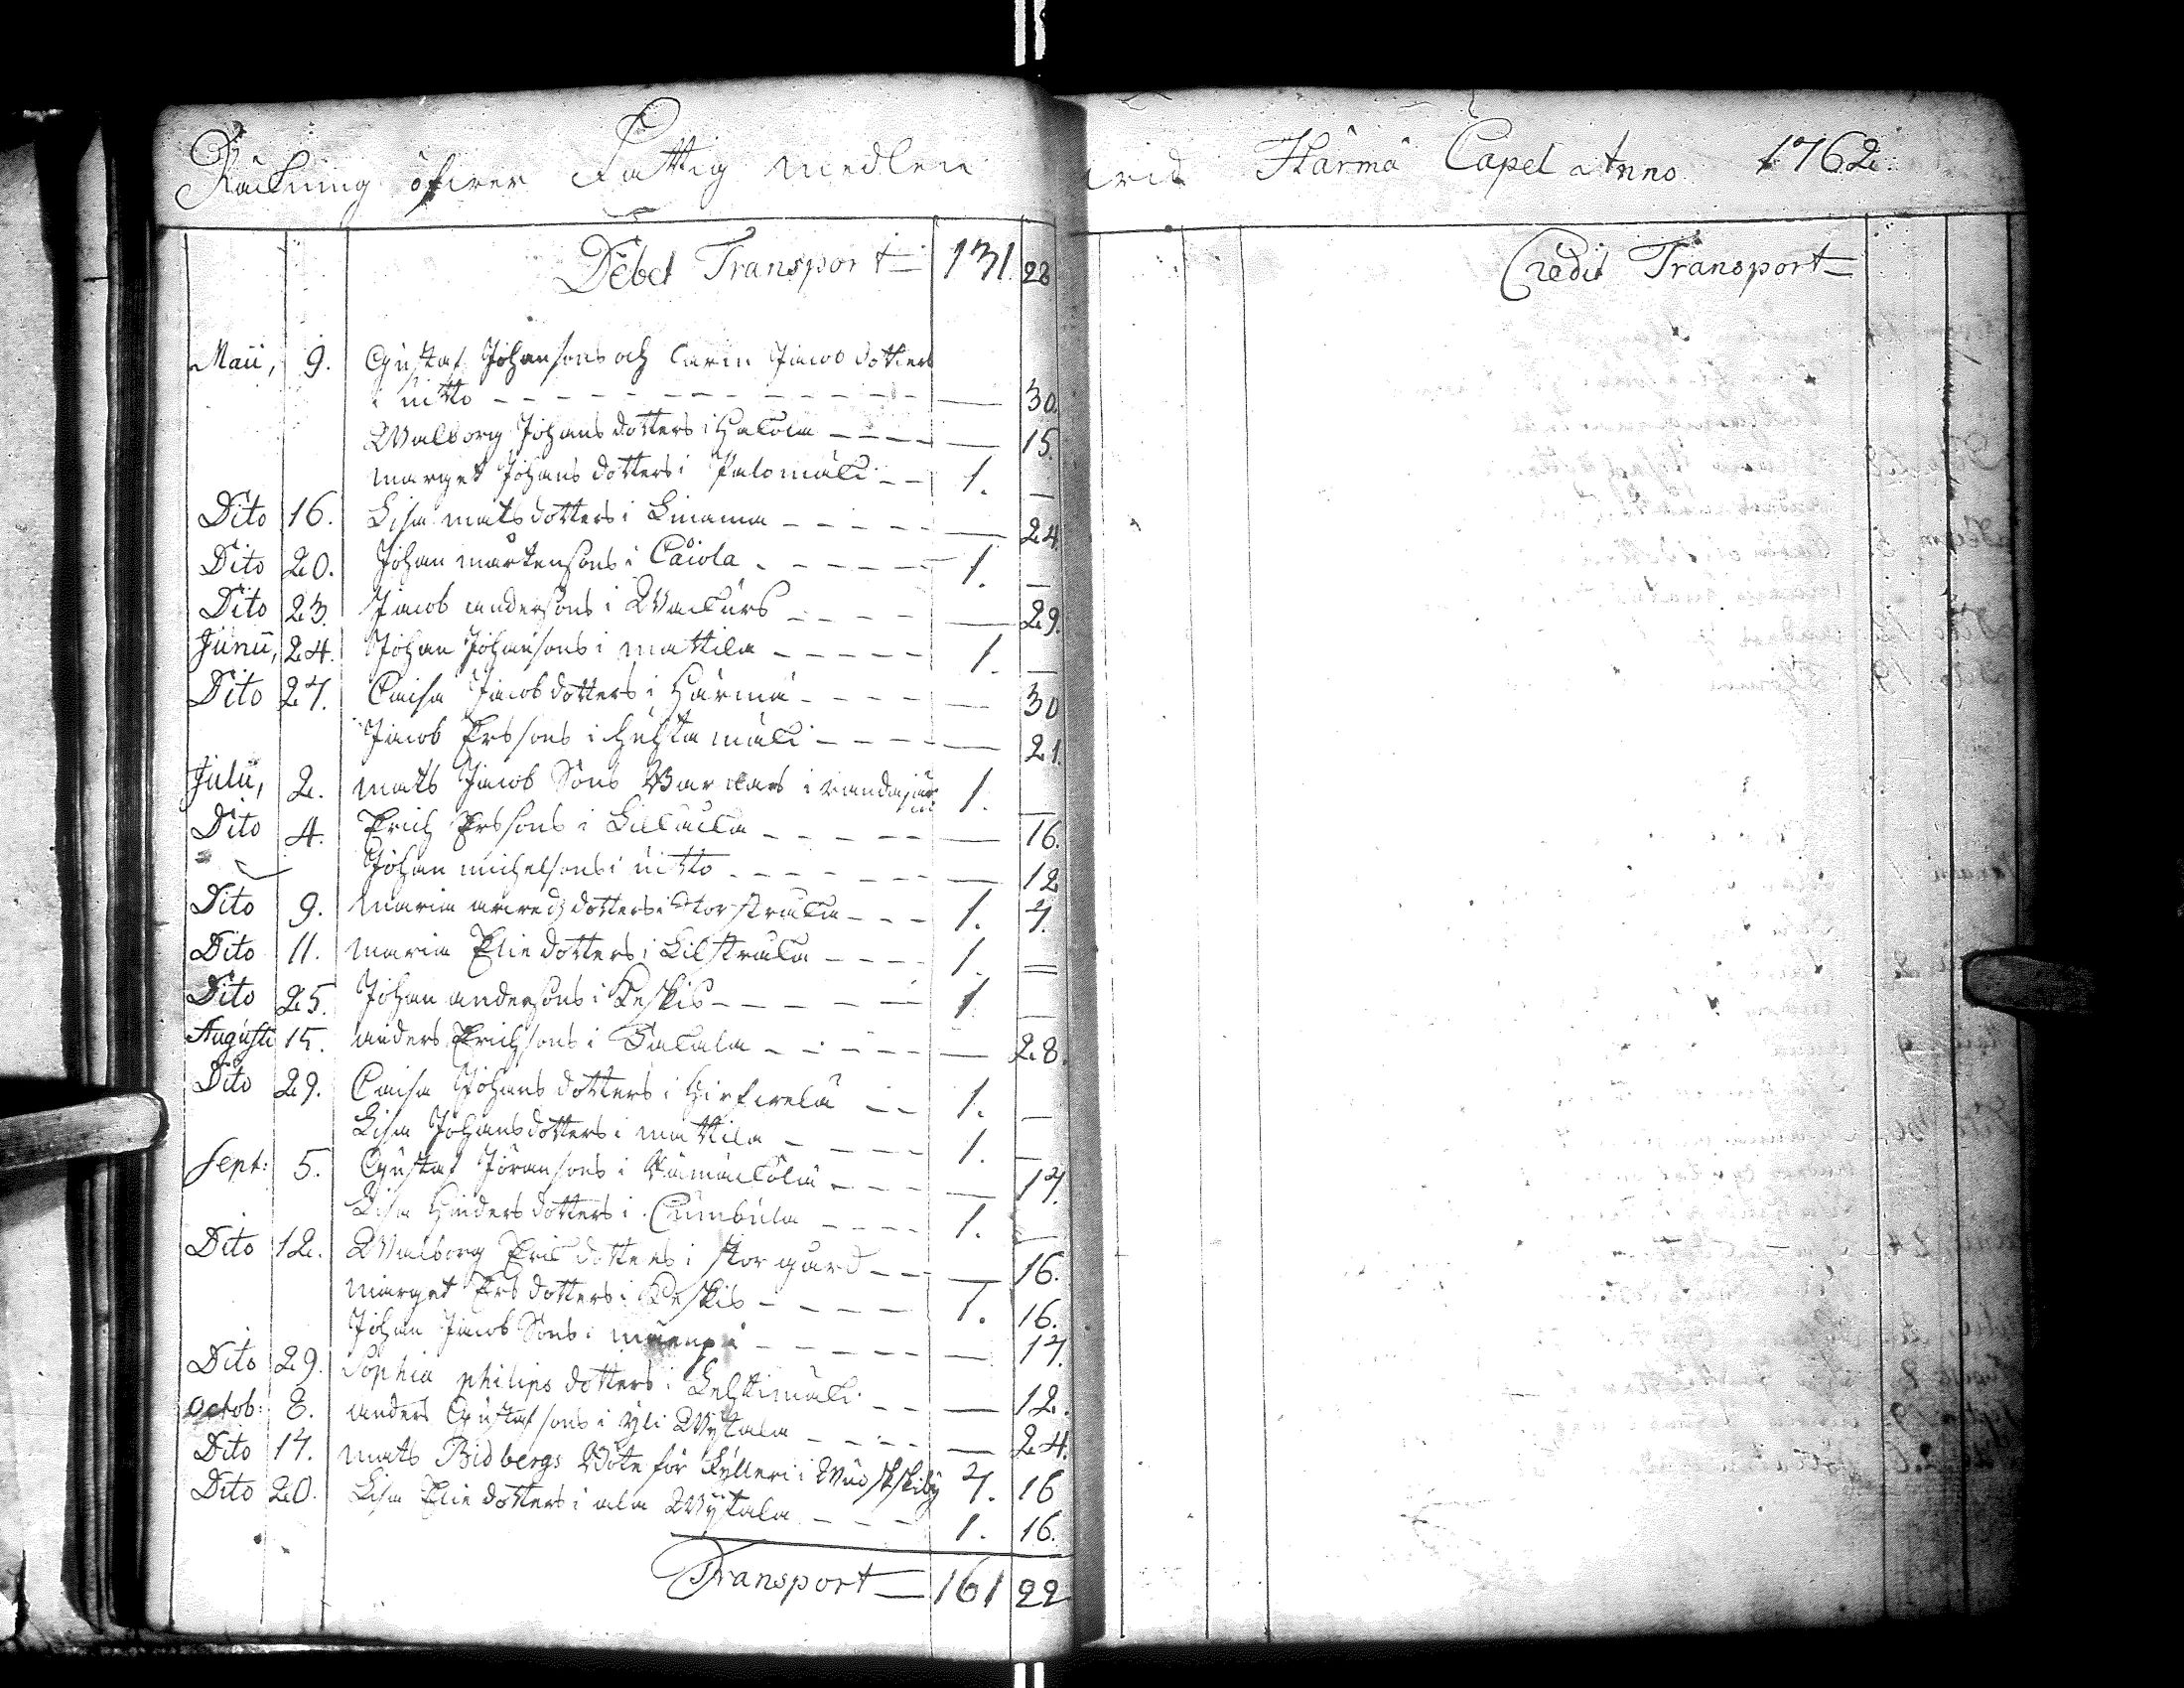 Räkning öfwer Fattig medlen wid Härmä Capel Anno 1762:
Debet Transport 131. 28
Maii, 9. Gustaf Johansons och Carin Jacobs dotters
i nitto — 30.
Walborg Johans dotters i Hakola — 15.
Marget Johans dotters i Palomäki 1. —
Dito 16. Lisa mats dotters i Linama — 24
Dito 20. Johan mårtensons i Caiola 1. —
Dito 23. Jacob andersons i — 29.
Junii, 24. Johan Johansons i mattila 1. —
Dito 27. Caisa Jacobs dotters i Härmä — 30
Jacob Erssons i mäki — 21.
Julii, 2. mats Jacob Sons i 1. —
Dito 4. Erich Erssons i — 16.
Johan michelsons i nitto — 12
Dito 9. Maria dotters i Storstråka 1. 7.
Dito 11. maria Elie dotters i Lilstråka 1. =
Dito 25. Johan andersons i Keskis 1. —
Augusti 15. anders Erichsons i Sakala — 28.
Dito 29. Caisa Johans dotters i Hirfwelä 1. —
Lisa Johans dotters i mattila 1. —
Sept: 5. Gustaf Jöransons i — 17.
Lisa Hinders dotters i Cumbula 1. —
Dito 12. Walborg Eric dotters i storgård — 16.
marget Ers dotters i Keskis 1. 16.
Johan Jacob Sons i mäenpä — 17.
Dito 29. Sophia philips dotters i Lehtimäki — 12.
Octob: 8. anders Gustafsons i yli Wytala — 24.
Dito 17. mats Bidbergs Böte för fylleri i 7. 16
Dito 20. Lisa Elie dotters i ala Wytala 1. 16.
Transport 161 22
Credit Transport